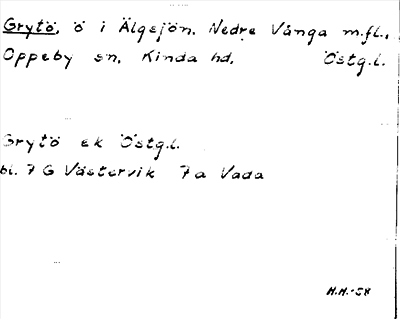 Grytö, ö i Älgsjön, Nedre Vånga m.fl.,
Oppeby sn, Kinda hd, Östg.l.
Grytö ek Östg.l.
bl. 7 G Västervik 7a Vada
H.H.-58